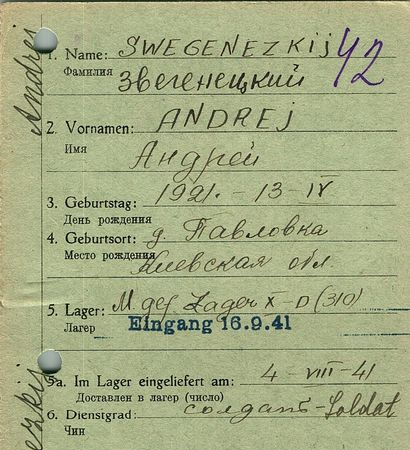 1. Name: SWEGENEZKIJ 42
Фамилия Звегенецкий
2. Vornamen: ANDREJ
Имя
Андрей
3. Geburtstag: 1921 - 13 - IV
День рождения
4. Geburtsort: д. Павловка
Место рождения Киевская обл.
5. Lager: M gef Lager X-D (310)
Лагер Eingang 16.9.41
5a. Im Lager eingeliefert am: 4 - VIII - 41
Доставлен в лагер (число)
6. Dienstgrad: солдат - Soldat
Чин
Andrej